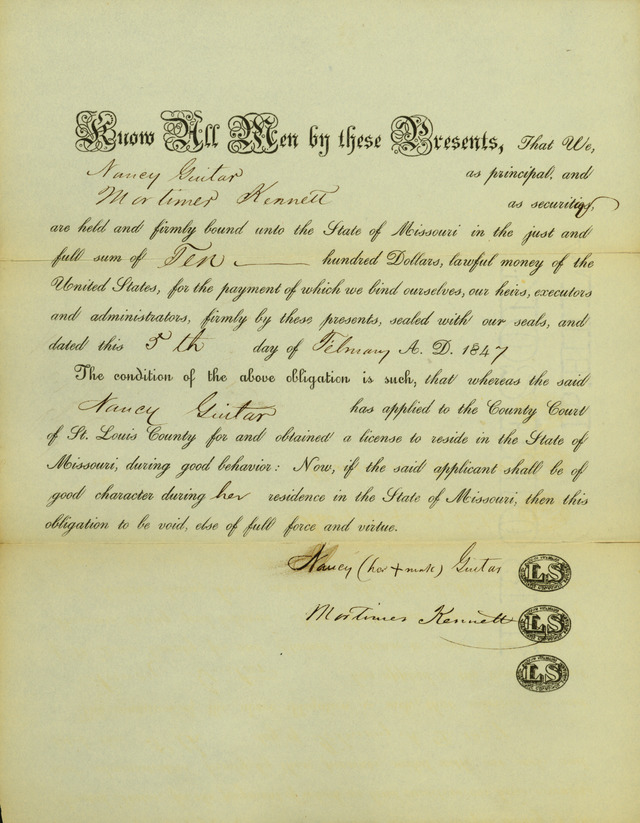 Know All Men by these Presents, That We,
Nancy Guitar as principal, and
Mortimer Kennett as security,
are held and firmly bound unto the State of Missouri in the just and
full sum of Ten hundred Dollars, lawful money of the
United States, for the payment of which we bind ourselves, our heirs, executors
and administrators, firmly by these presents, sealed with our seals, and
dated this 5th day of February A. D. 1847
The condition of the above obligation is such, that whereas the said
Nancy Guitar has applied to the County Court
of St. Louis County for and obtained a license to reside in the State of
Missouri, during good behavior: Now, if the said applicant shall be of
good character during her residence in the State of Missouri, then this
obligation to be void, else of full force and virtue.
Nancy (her + mark) Guitar LS
Mortimer Kennett LS
LS